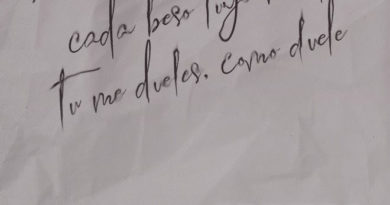 cada beso
Tu me dueles. como duele